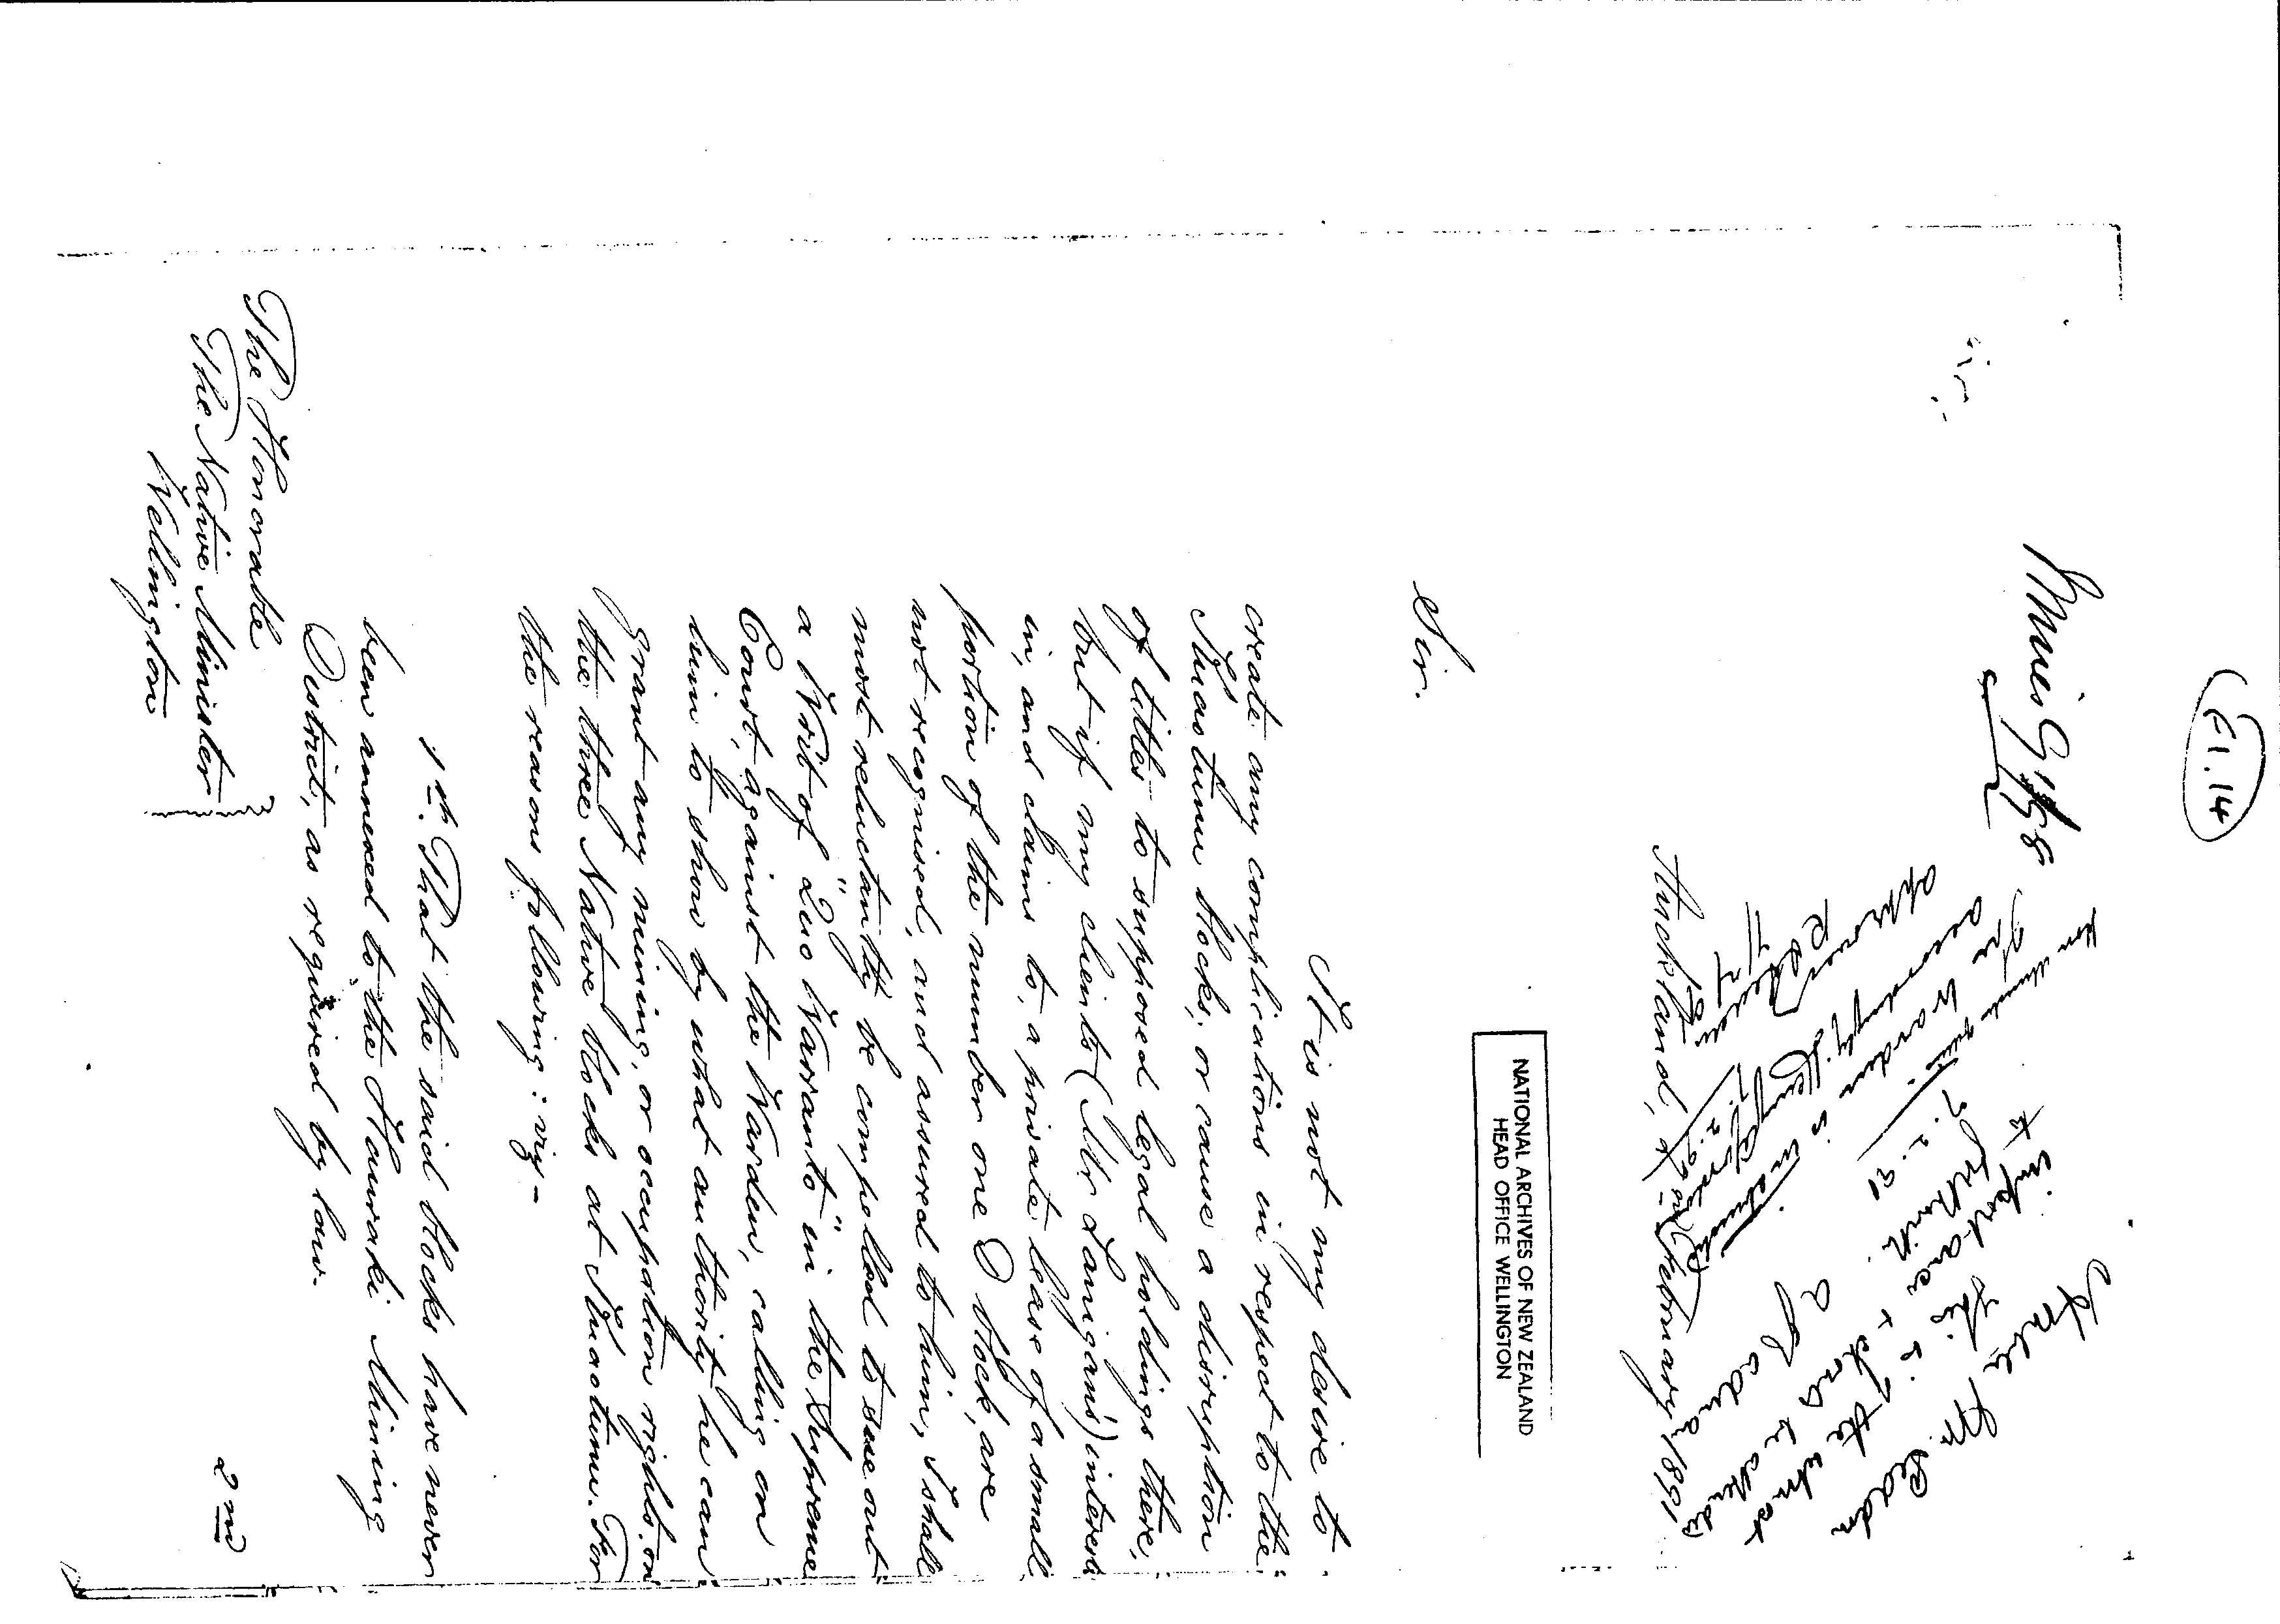 E1.14
Mines 91/58
Hon
The Warden is instructed
accordingly.
7.2.91
approved
7/2/91
Hon Mr Cadman
This is of the utmost
importance &
A J Cadman
Auckland, February 1891
NATIONAL ARCHIVES OF NEW ZEALAND
HEAD OFFICE WELLINGTON
Sir.
It is not my desire to
create any complications in respect to the
Kuaotunu blocks, or cause a disruption
of titles to supposed legal holdings there,
but if my clients (Mr Lanigan's) interest
in, and claims to, a private lease of a small
portion of the number one D block, are
not recognised, and assured to him, I shall
most reluctantly be compelled to sue out
a Writ of "Quo Warranto" in the Supreme
Court, against the Warden, calling on
him to show by what authority he can
grant any mining, or occupation rights on
the three Native blocks at Kuaotunu. For
the reasons following: viz -
1st. That the said blocks have never
been annexed to the Hauraki Mining
District, as required by law.
The Honorable
The Native Minister
Wellington
2nd